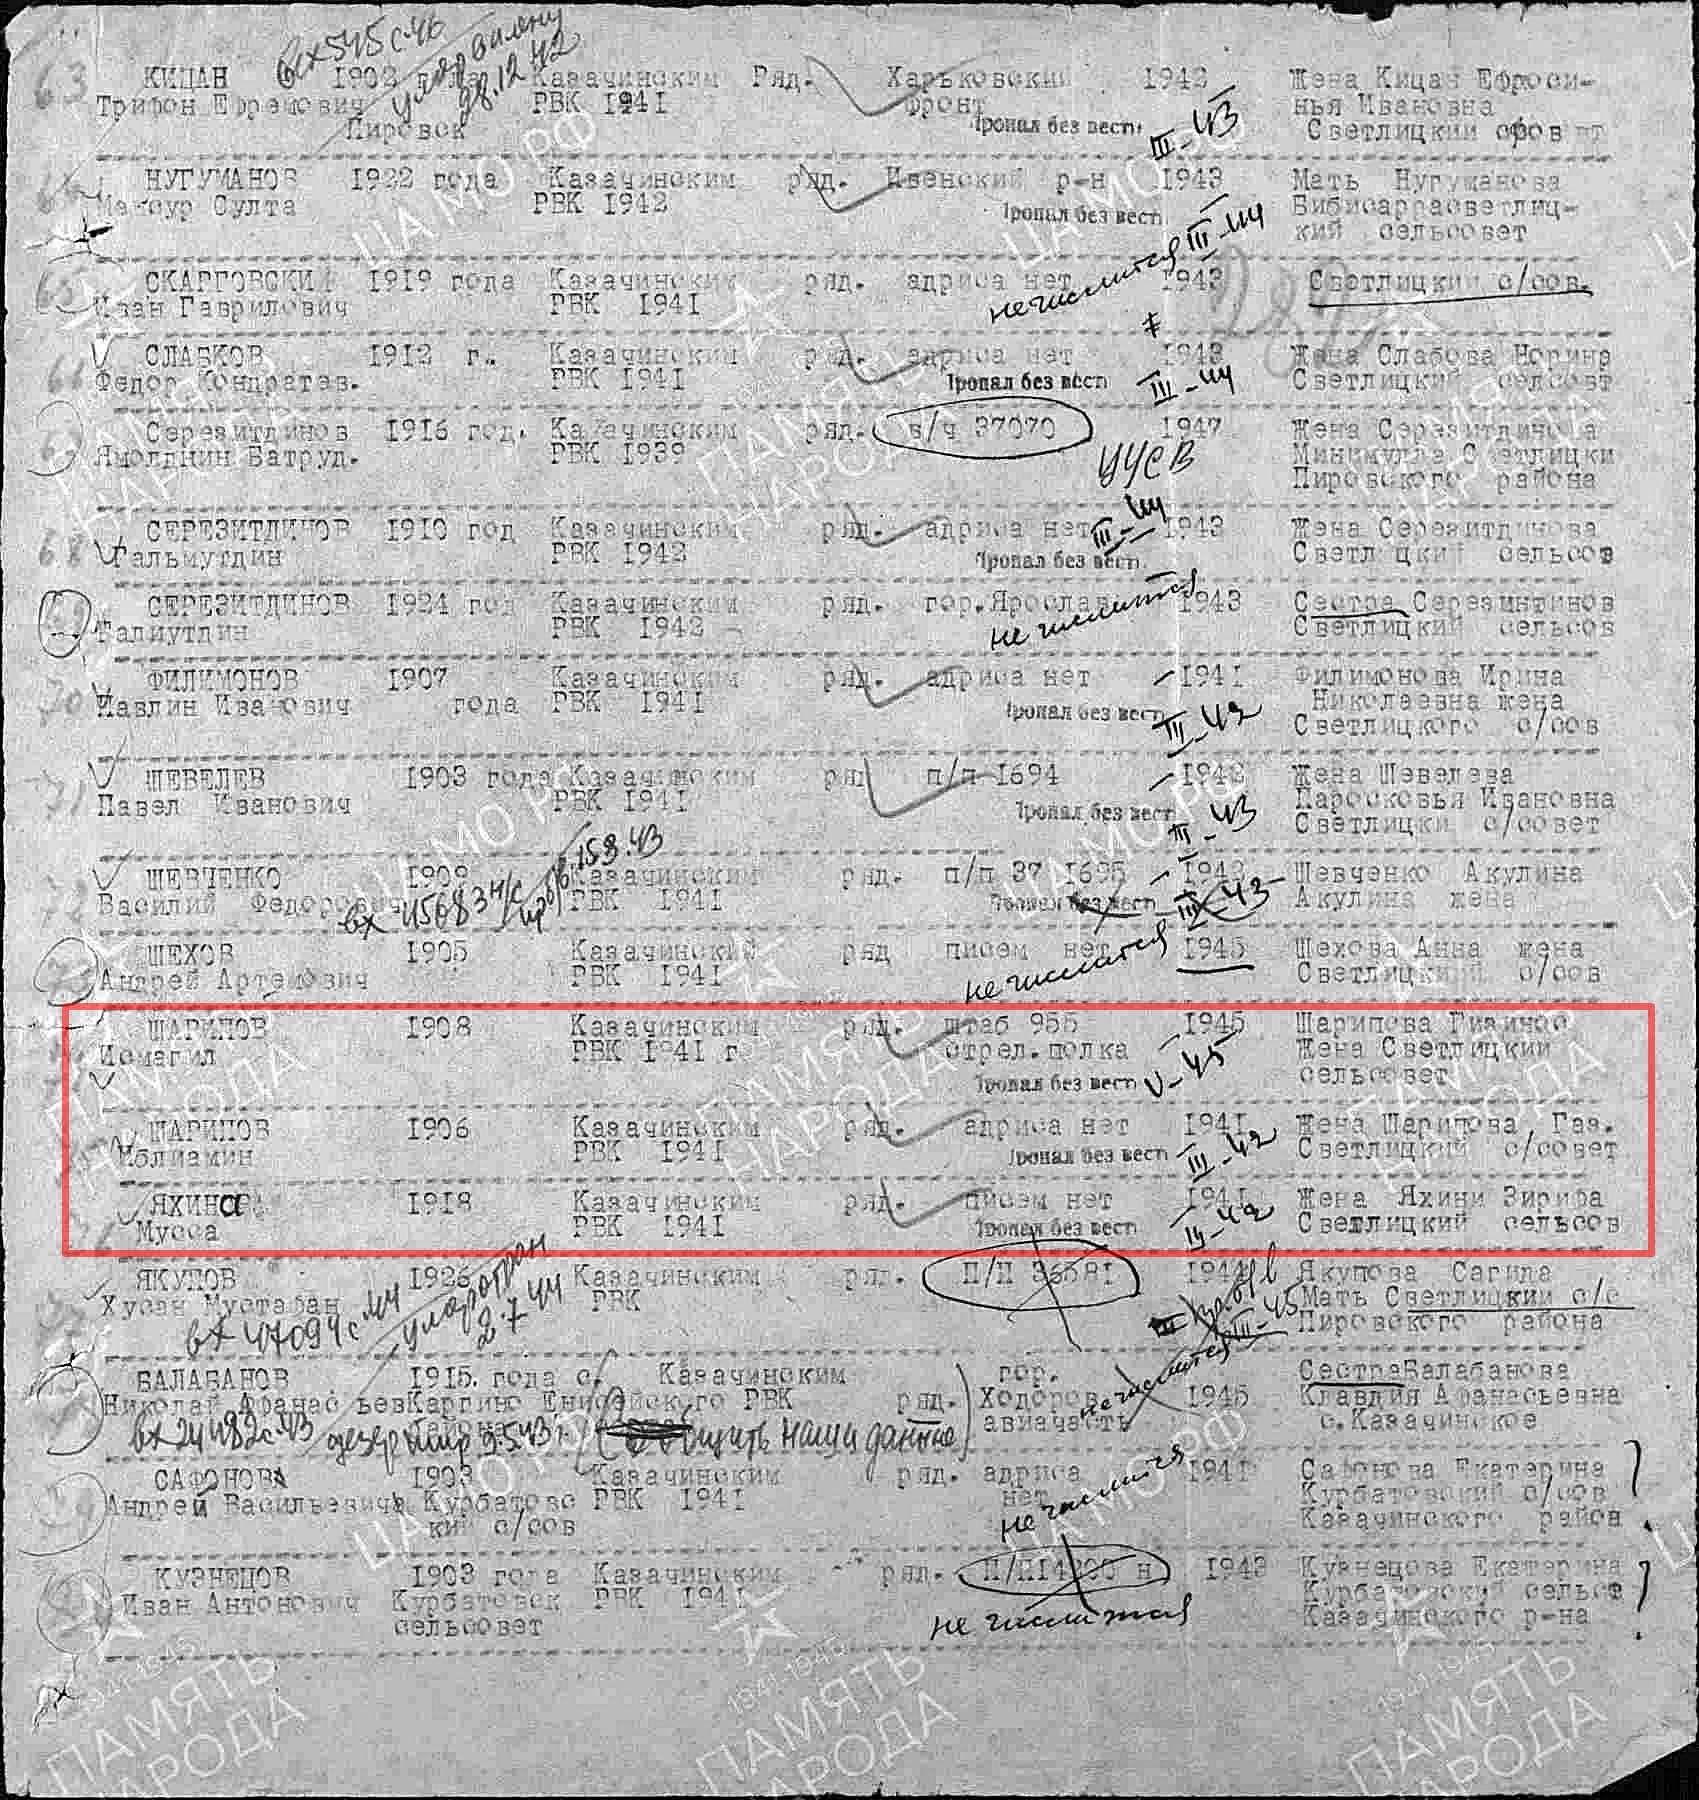 63 КИЦАН 1902 года Казачинским Ряд. Харьковский 1942 Жена Кицан Ефроси-
вх 545 с 46
28.12.42
Трифон Ефремович РВК 1941 фронт нья Ивановна
Пировск Пропал без вести III-43 Светлицкий сфовет
НУГУМАНОВ 1922 года Казачинским ряд. Ивенский р-н 1943 Мать Нугуманова
Мансур Султа РВК 1942 Пропал без вест III-44 Бибисаррасветлиц-
кий сельсовет
65 СКАРГОВСКИЙ 1919 года Казачинским ряд. адриса нет 1943 Светлицкий с/сов.
Иван Гаврилович РВК 1941 не числится
66 СЛАБКОВ 1912 г.. Казачинским ряд. адриса нет 1943 Жена Слабова Норина
Федор Кондратев. РВК 1941 Пропал без вест III-44 Светлицкий селсовт
Серезитдинов 1916 год. Казачинским ряд. в/ч 37070 1947 Жена Серезитдинова
Ямолднин Батруд. РВК 1939 Минимулла Светлицки
Пировского района
68 СЕРЕЗИТДИНОВ 1910 год Казачинским ряд. адриса нет 1943 Жена Серезитдинова
Гальмутдин РВК 1942 Пропал без вест III-44 Светлицкий сельсов
69 СЕРЕЗИТДИНОВ 1924 год Казачинским ряд. гор.Ярославль 1943 Сестра Серезинтинов
Галиутдин РВК 1942 не числится Светлицкий сельсов
70 ФИЛИМОНОВ 1907 Казачинским ряд. адриса нет 1941 Филимонова Ирина
Павлин Иванович года РВК 1941 Пропал без вест III-42 Николаевна жена
Светлицкого с/сов
71 ШЕВЕЛЕВ 1903 года Казачинским ряд п/п 1694 1942 Жена Шевелева
Павел Иванович РВК 1941 Пропал без вест III-43 Паросковья Ивановна
Светлицки с/совет
72 ШЕВЧЕНКО 1909 Казачинским ряд. п/п 37 1695 1942 Шевченко Акулина
Василий Федорович РВК 1941 Пропал без вест III-43 Акулина жена
73 ШЕХОВ 1905 Казачинский ряд писем нет 1945 Шехова Анна жена
Андрей Артемович РВК 1941 не числится Светлицкий с/сов
ШАРИПОВ 1908 Казачинским ряд. штаб 955 1945 Шарипова Гизинос
Исмагил РВК 1941 г стрел.полка Жена Светлицкий
Пропал без вест V-45 сельсовет
ШАРИПОВ 1906 Казачинским ряд. адриса нет 1941 Жена Шарипова Газ.
Иблиамин РВК 1941 Пропал без вест III-42 Светлицкий с/совет
ЯХИНа 1918 Казачинским ряд. писем нет 1941 Жена Яхини Зирифа
Мусса РВК 1941 Пропал без вест III-42 Светлицкий сельсов
ЯКУПОВ 1926 Казачинским ряд. П/П 36581 1944 Якупова Сагида
Хусан Мустафан РВК Мать Светлицкий с/с
вх 47094с 44 2.7.44 III-45 Пировского района
БАЛАБАНОВ 1915. года с. Казачинским гор. СестраБалабанова
Николай Афанасьев Каргино Енисейского РВК ряд. Ходоров 1945 Клавдия Афанасьевна
района авиачасть не числится с.Казачинское
вх 24482с 43 дезертир 9.5.43г. наши данные
САФОНОВА 1903 Казачинским ряд. адриса 1941 Сафонова Екатерина
Андрей Васильевичь Курбатовс РВК 1941 нет Курбатовский с/сов
кий с/сов не числится Казачинского район
КУЗНЕЦОВ 1903 года Казачинским ряд. 1943 Кузнецова Екатерина
Иван Антонович Курбатовск РВК 1941 Курбатовский сельсв
сельсовет не числится Казачинского р-на
ЦАМО РФ
1941-1945
ПАМЯТЬ
НАРОДА